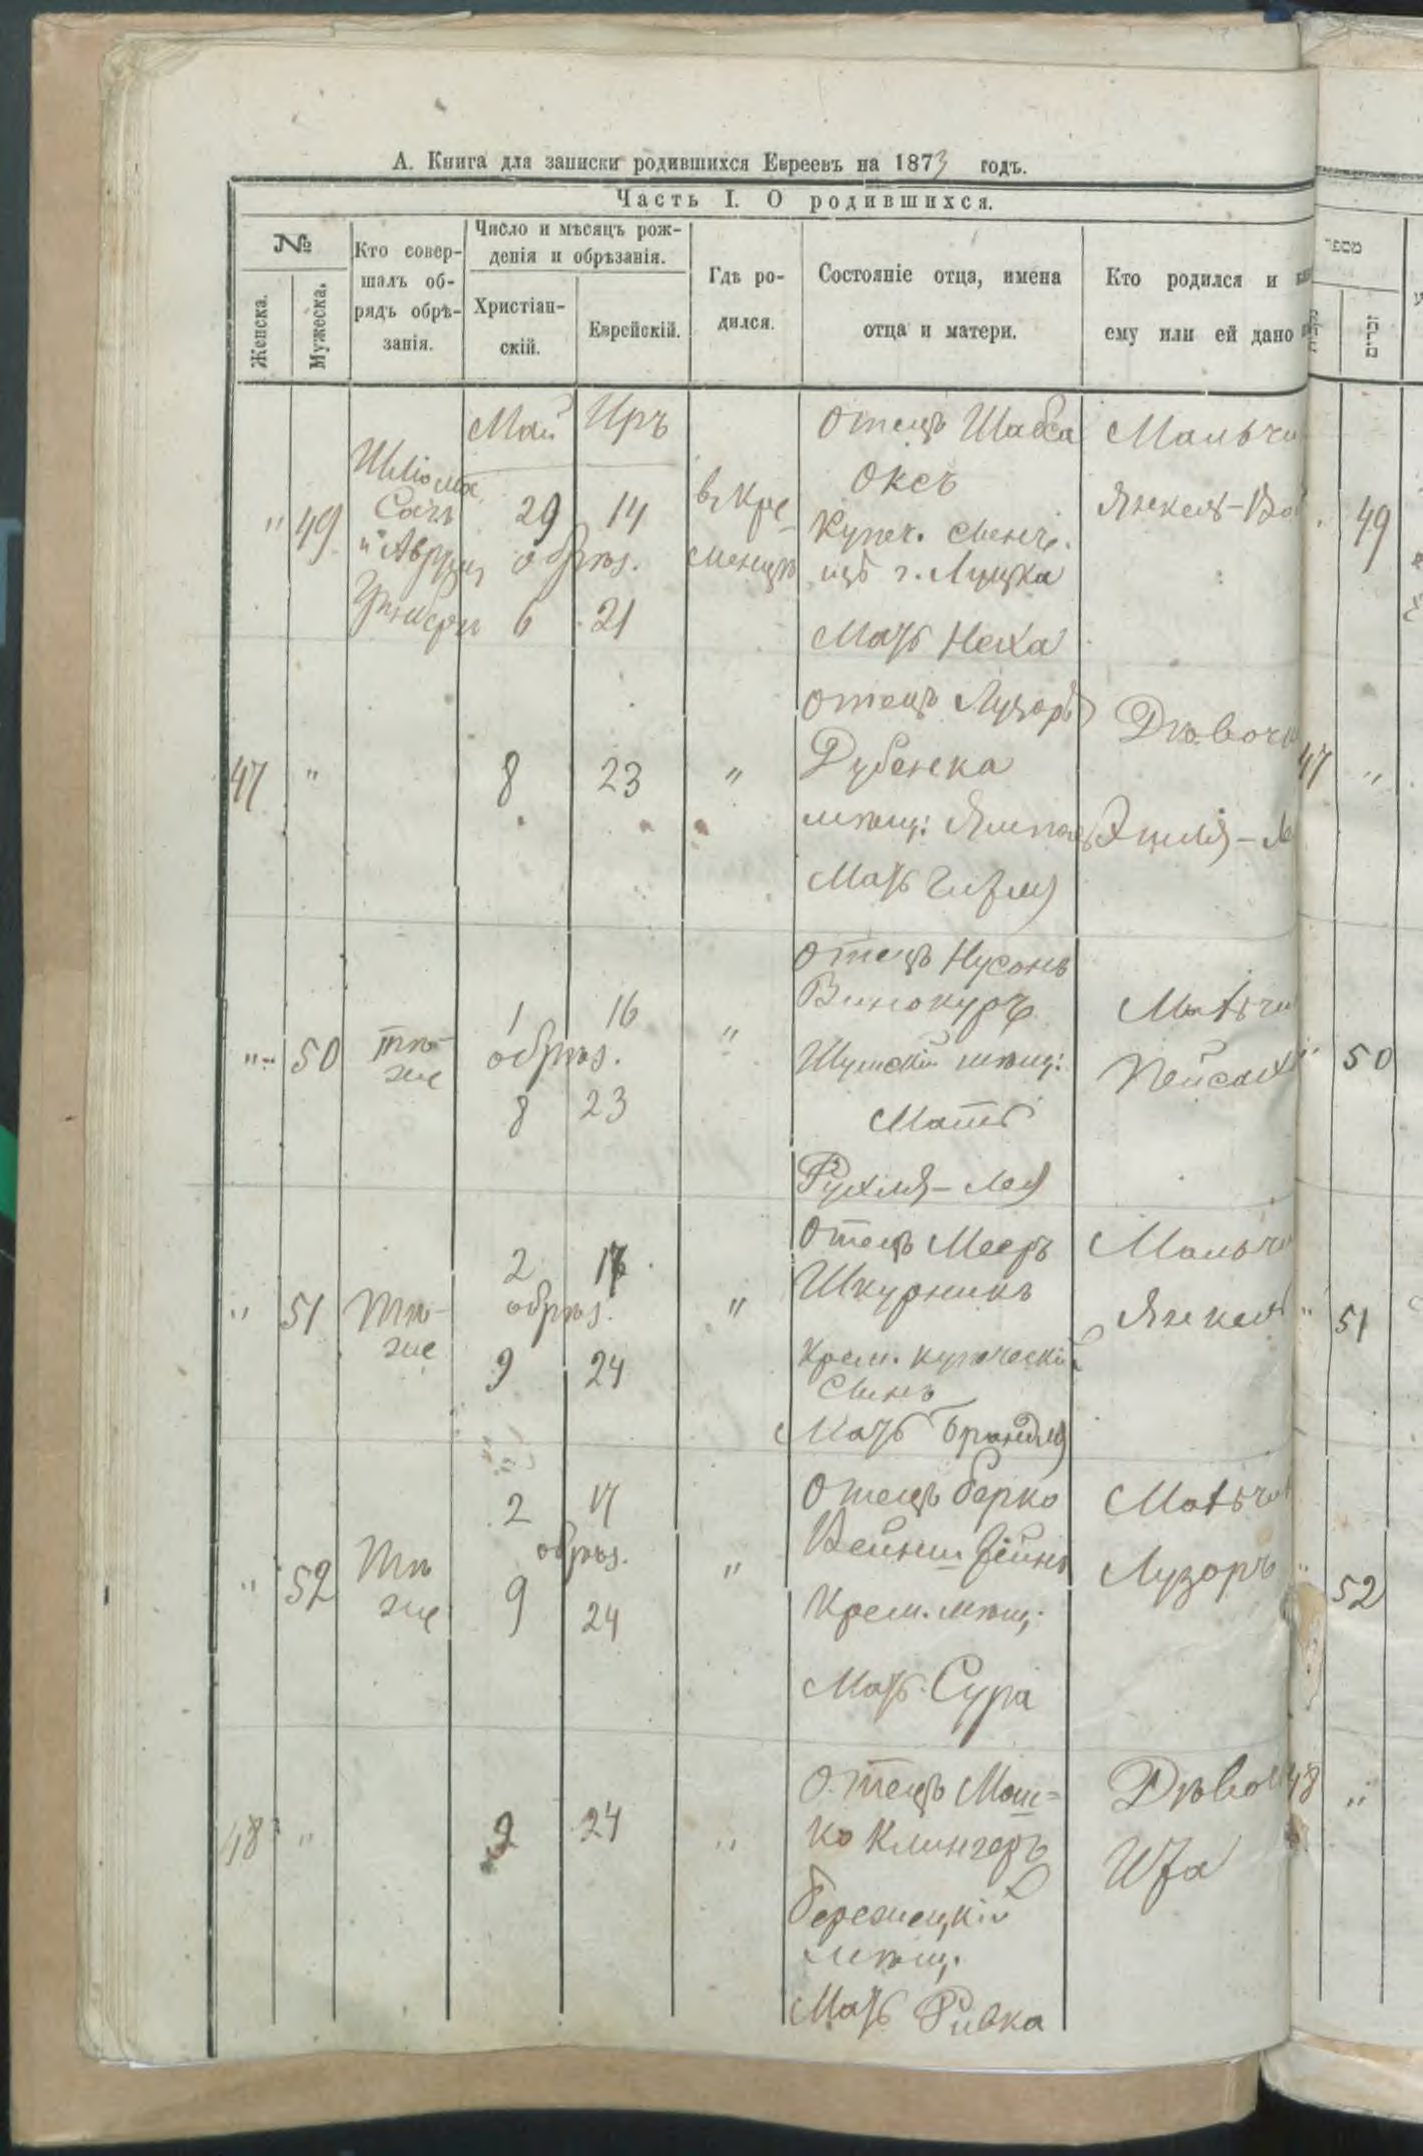 А. Книга для записки родившихся Евреевъ на 1873 годъ.
Часть I. О родившихся.
№
Женска.
Мужеска.
Кто совер-
шалъ об-
рядъ обрѣ-
занія.
Число и мѣсяцъ рож-
денія и обрѣзанія.
Христіан-
скій.
Еврейскій.
Гдѣ ро-
дился.
Состояніе отца, имена
отца и матери.
Кто родился и
ему или ей дано
מספר
זכרים
" 49
Шліома
и Аврум
Май Иръ
29 14
обрѣз.
6 21
въ Кре-
менцѣ
Отецъ Шабса
Оксъ
Купеч.
г. Луцка
Мать Неха
Мальчи
Янкель-
49
47 "
8 23
"
Отецъ Лузоръ
Дубенска
мѣщ:
Мать
Дѣвочк
47 "
" 50
тѣ-
же
1 16
обрѣз.
8 23
"
Отецъ Нусонъ
Винокуръ
Шумскій мѣщ:
Мать
Рухля-Лея
Мальчи
Пейсахъ
" 50
" 51
тѣ-
же
2 17
обрѣз.
9 24
"
Отецъ Мееръ
Шкурникъ
Крем. купеческій
сынъ
Мать Брандля
Мальчи
Янкель
" 51
" 52
тѣ
же
2 17
обрѣз.
9 24
"
Отецъ Берко
Вейнштейнъ
Крем. мѣщ:
Мать Сура
Мальчи
Лузоръ
" 52
48 "
9 24
"
Отецъ Мош-
ко Клингеръ
Бережецкій
мѣщ.
Мать Ривка
Дѣвоч
Ита
48 "